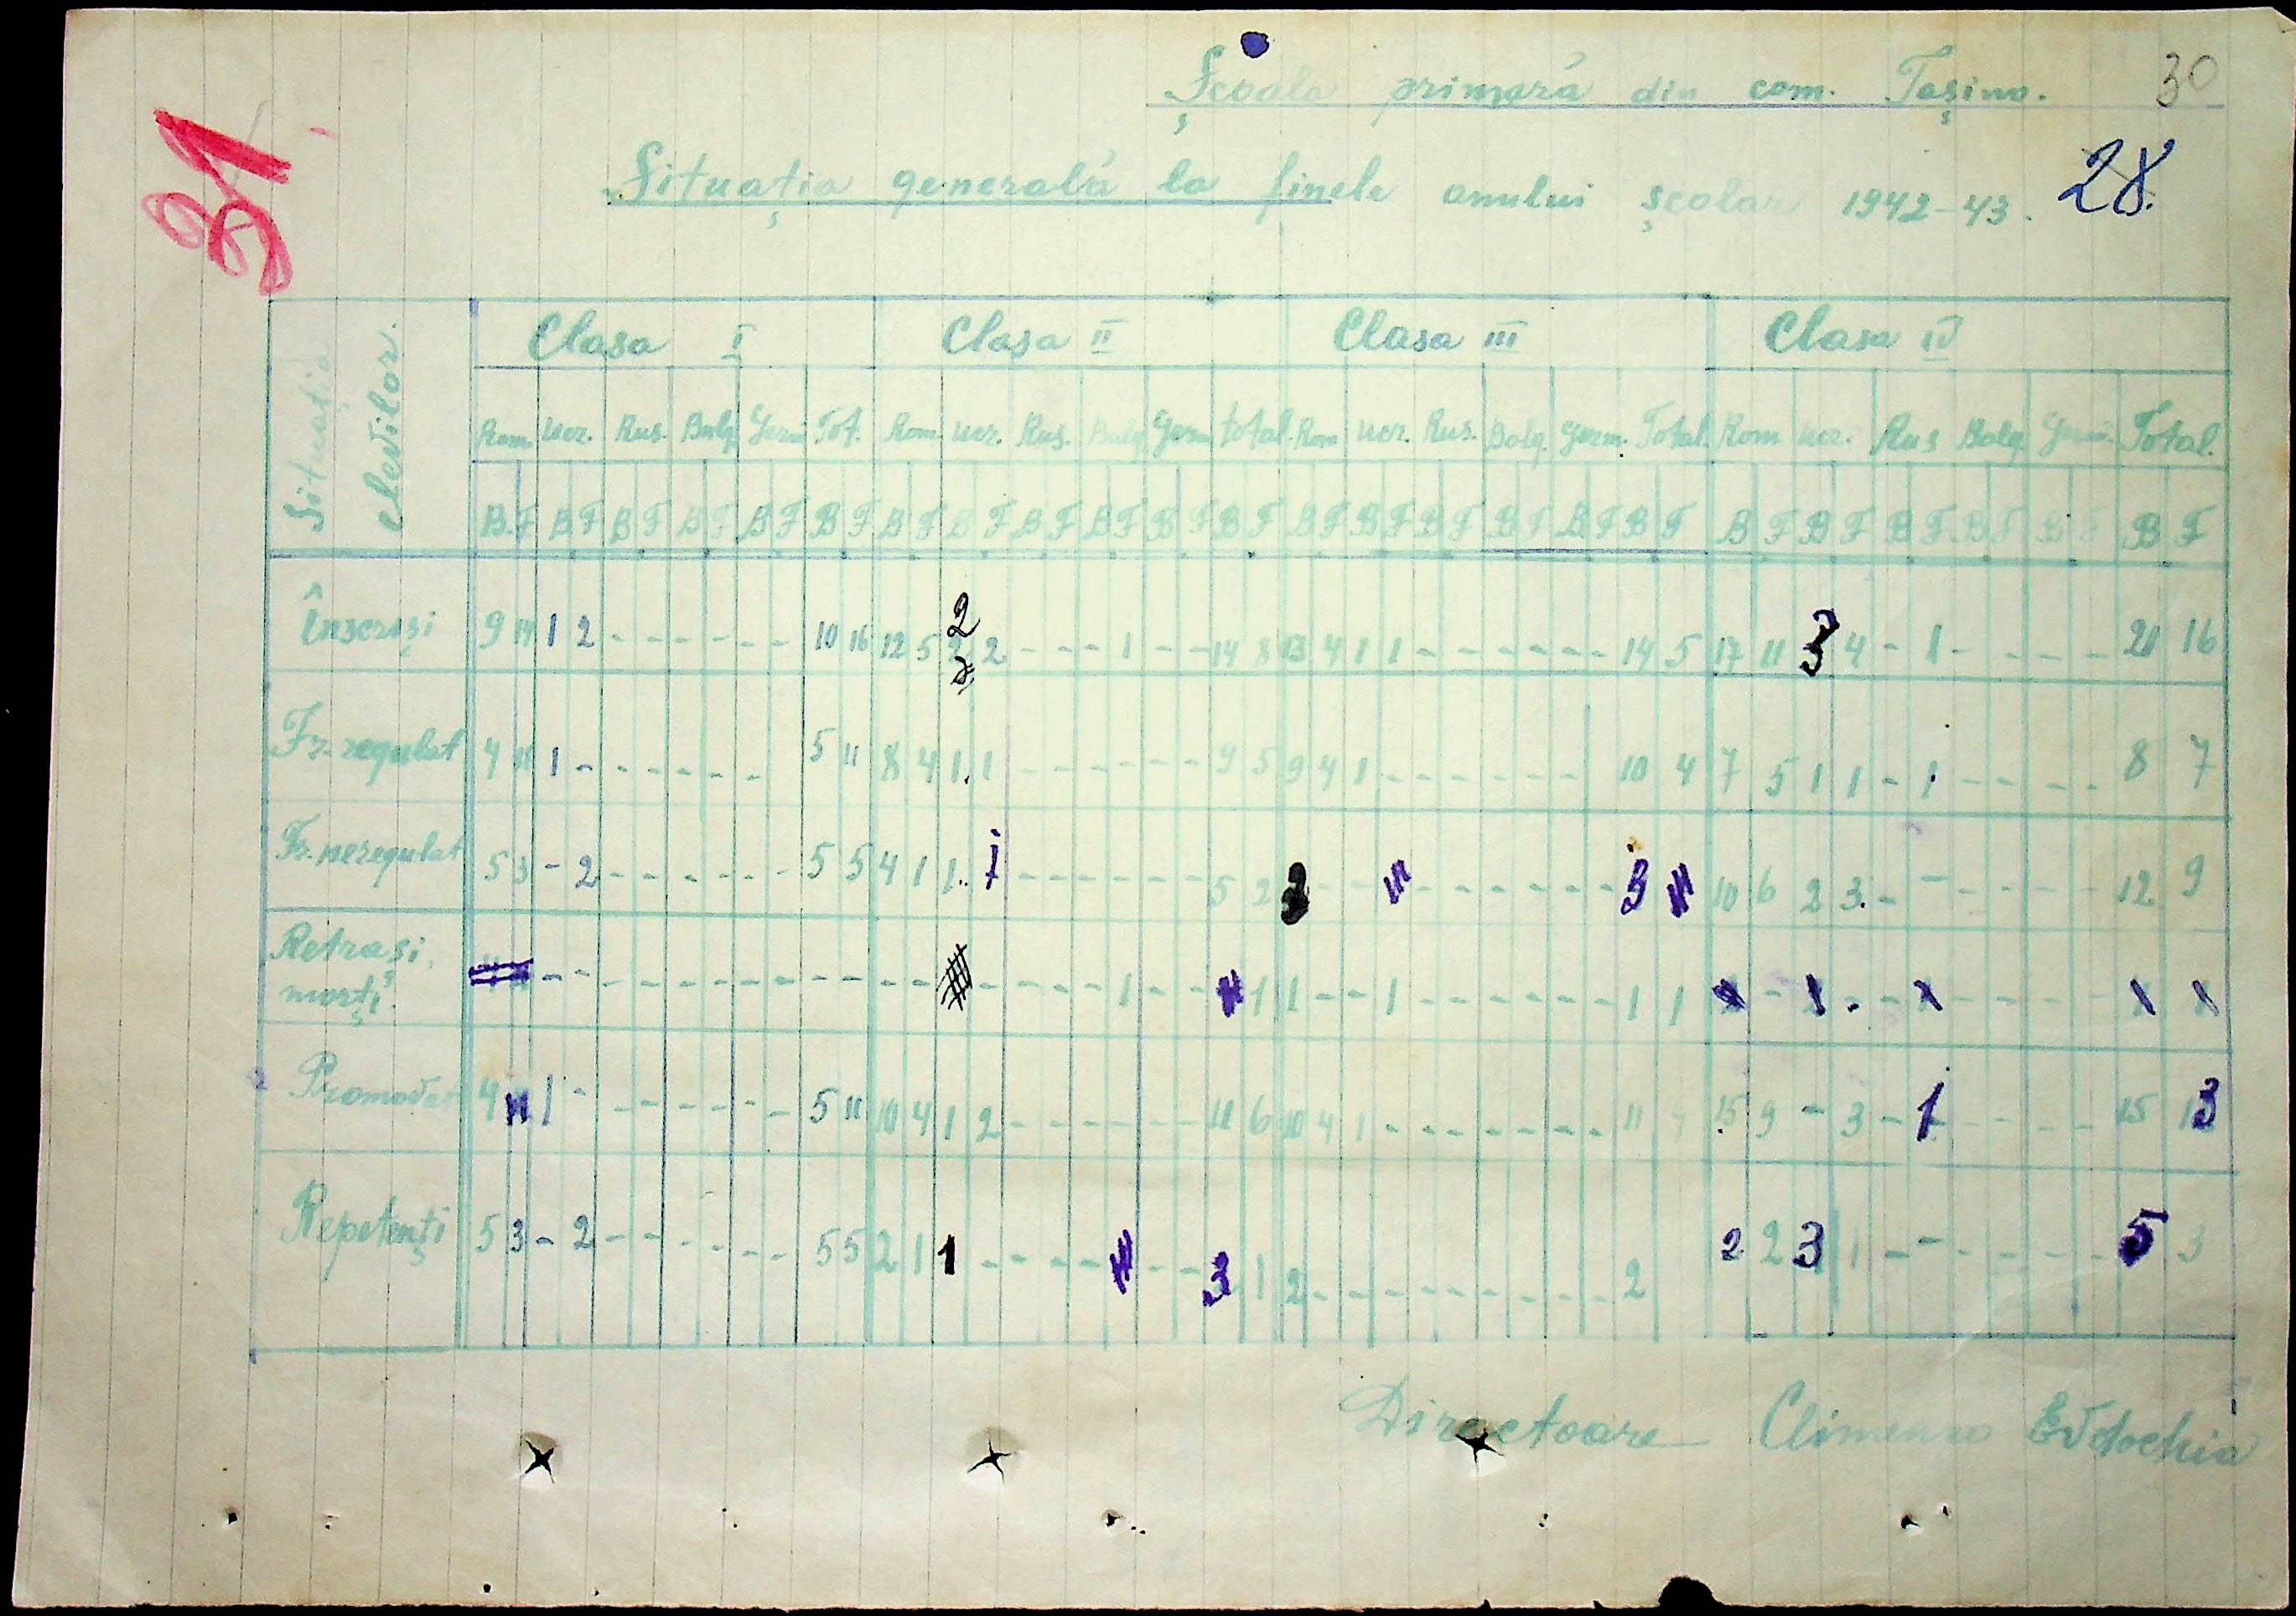 Școala primară din com. Tașino. 30
Situația generală la finele anului școlar 1942-43. 28.
31
Situația elevilor.
Clasa I Clasa II Clasa III Clasa IV
Rom Ucr. Rus. Bulg. Germ Tot. Rom Ucr. Rus. Bulg Germ total Rom Ucr. Rus. Bolg. Germ. Total Rom Ucr. Rus Bolg Germ. Total.
B. F B F B F B F B F B F B F B F B F B F B F B F B F B F B F B F B F B F B F B F B F B F B F B F
Înscriși 9 14 1 2 - - - - - - 10 16 12 5 2 2 - - - 1 - - 14 8 13 4 1 1 - - - - - - 14 5 17 11 3 4 - 1 - - - - 21 16
Fr. regulat 4 11 1 - - - - - - - 5 11 8 4 1 1 - - - - - - 9 5 9 4 1 - - - - - - - 10 4 7 5 1 1 - 1 - - - - 8 7
Fr. neregulat 5 3 - 2 - - - - - - 5 5 4 1 1 1 - - - - - - 5 2 3 - - - - - - - - 3 10 6 2 3 - - - - - - 12 9
Retrași, morți. - - - - - - - - - - - - - - - - 1 - - 1 1 - - 1 - - - - - - 1 1
Promovat 4 11 1 - - - - - - - 5 11 10 4 1 2 - - - - - - 11 6 10 4 1 - - - - - - - 11 4 15 9 - 3 - 1 - - - - 15 13
Repetenți 5 3 - 2 - - - - - - 5 5 2 1 1 - - - - - - 3 1 2 - - - - - - - - - 2 2 2 3 1 - - - - - - 5 3
Directoare Evdochia